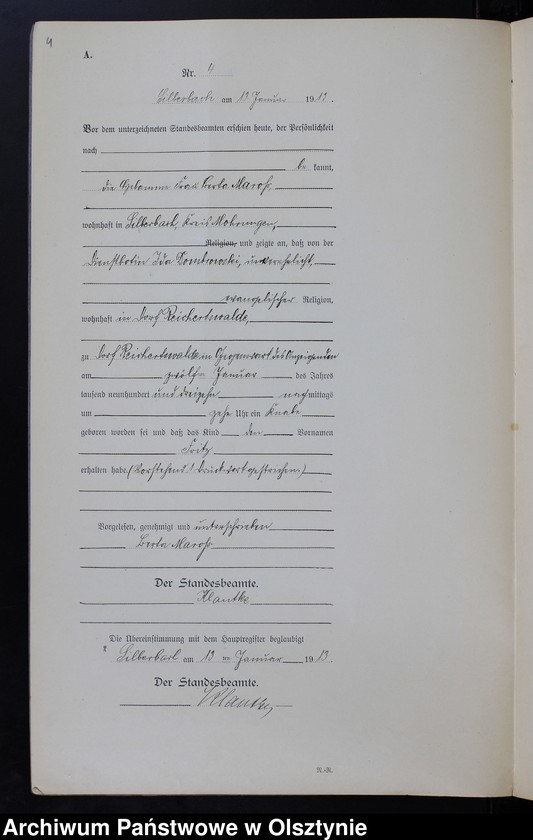 4
A.
Nr. 4
Silberbach am 13 Januar 1913.
Vor dem unterzeichneten Standesbeamten erschien heute, der Persönlichkeit
nach
be kannt,
die Hebamme Frau Berta Maross,
wohnhaft in Silberbach, Kreis Mohrungen,
Religion, und zeigte an, daß von der
Dienstbotin Ida Dombrowski, unverehelicht,
evangelischer Religion,
wohnhaft in Dorf Reichertswalde,
zu Dorf Reichertswalde in Gegenwart des Anzeigenden
am zwölf Januar des Jahres
tausend neunhundert und dreizehn nachmittags
um zehn Uhr ein Knabe
geboren worden sei und daß das Kind den Vornamen
Fritz
erhalten habe. (Vorstehend 1 Druckwort gestrichen)
Vorgelesen, genehmigt und unterschrieben
Berta Maross
Der Standesbeamte.
Klautke
Die Übereinstimmung mit dem Hauptregister beglaubigt
Silberbach am 13 Januar 1913.
Der Standesbeamte.
Klautke
N.-R.
Archiwum Państwowe w Olsztynie